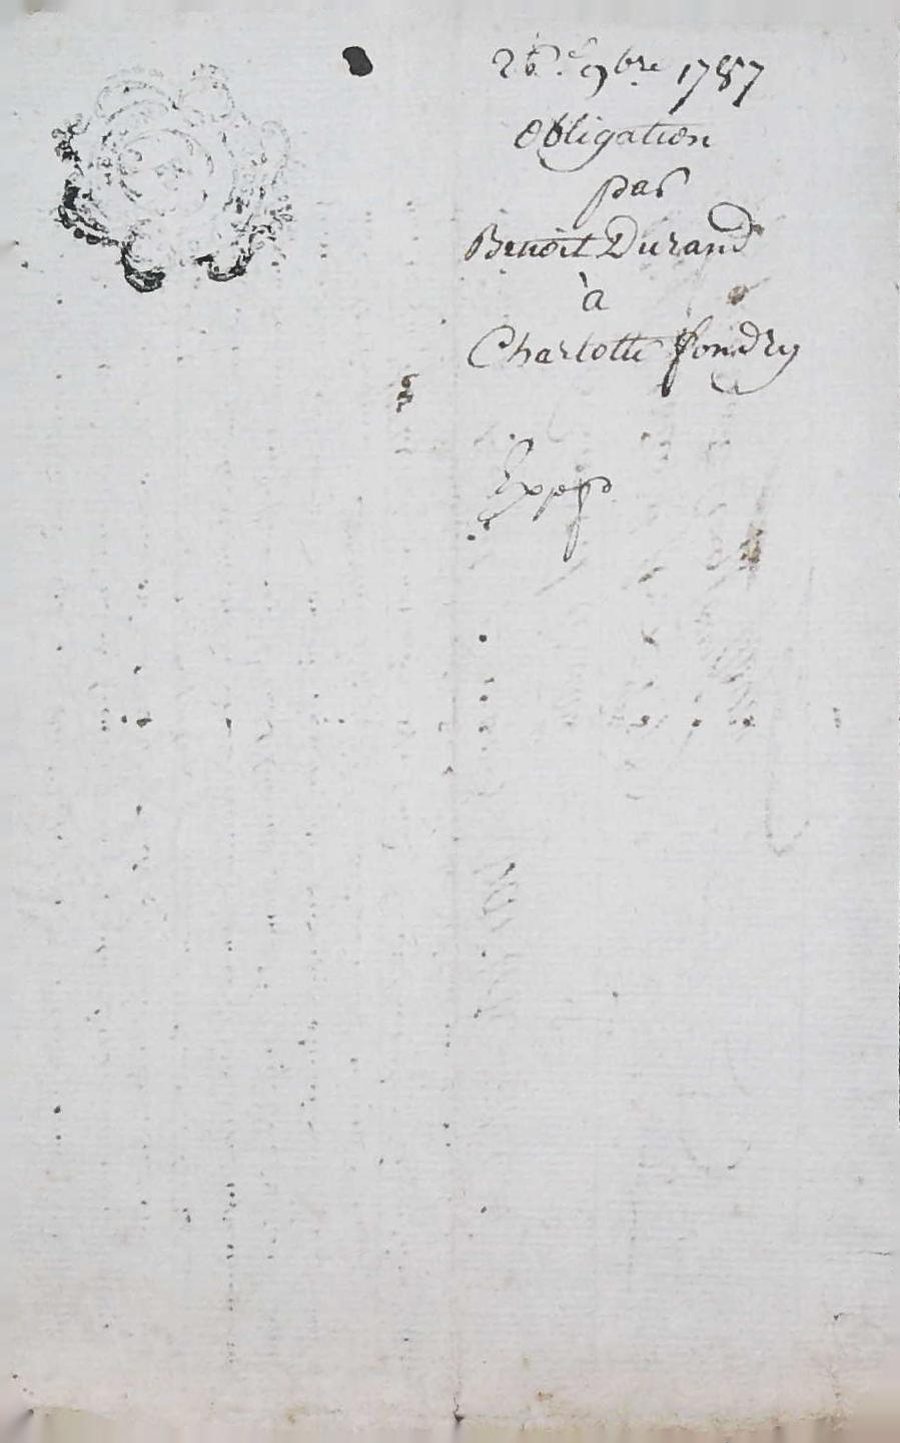 26.e 9bre 1787
Obligation
par
Benoit Durand
à
Charlotte fondry
Expéd